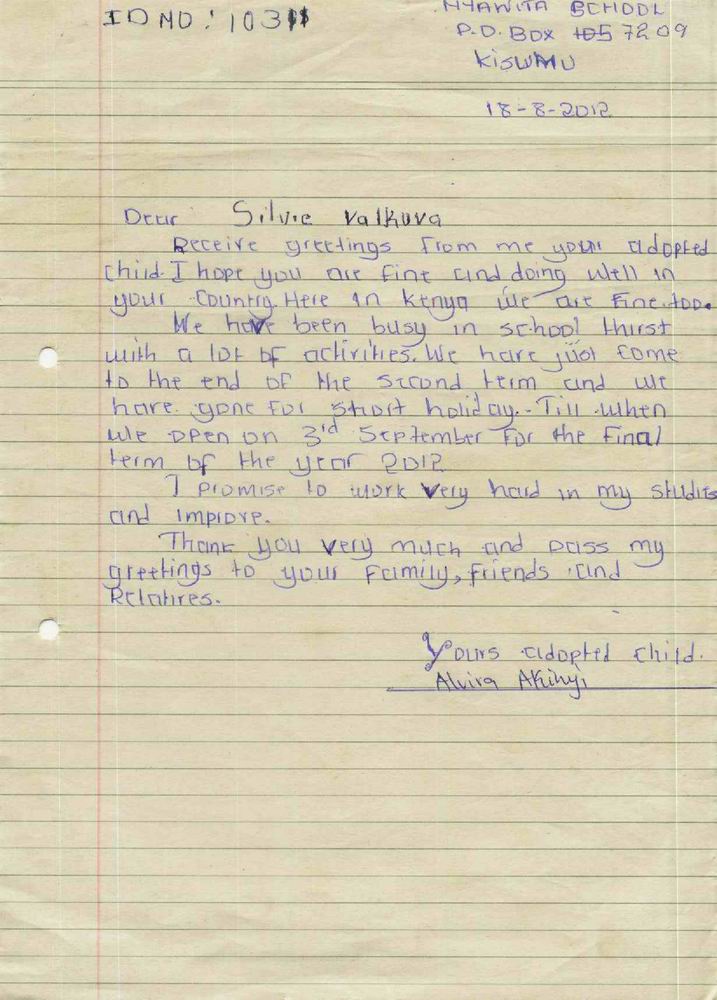 ID NO: 1031
NYAWITA SCHOOL
P.O. BOX 7209
KISUMU
18-8-2012
Dear Silvie Valkova
Receive greetings from me your adopted
child. I hope you are fine and doing well in
your country. Here in kenya we are fine too.
We have been busy in school thirst
with a lot of activities. We have just come
to the end of the second term and we
have gone for short holiday. Till when
we open on 3rd September for the final
term of the year 2012
I promise to work very hard in my studies
and improve.
Thank you very much and pass my
greetings to your family, friends and
Relatives.
Yours adopted child.
Alvira Akinyi